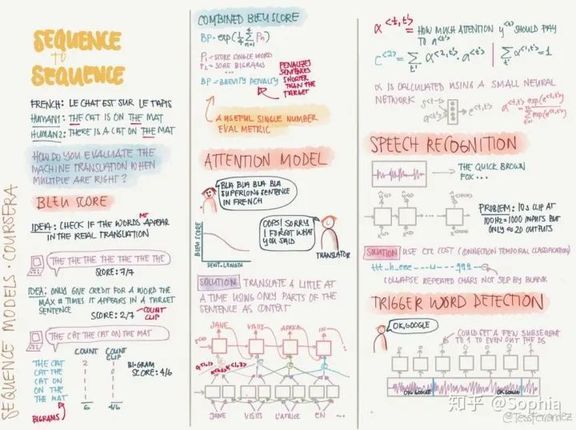 SEQUENCE MODELS · COURSERA
SEQUENCE
to
SEQUENCE
FRENCH: LE CHAT EST SUR LE TAPIS
HUMAN1: THE CAT IS ON THE MAT
HUMAN2: THERE IS A CAT ON THE MAT
HOW DO YOU EVALUATE THE
MACHINE TRANSLATION WHEN
MULTIPLE ARE RIGHT?
BLEU SCORE
IDEA: CHECK IF THE WORDS APPEAR
IN THE REAL TRANSLATION
THE THE THE THE THE THE THE
SCORE: 7/7
IDEA: ONLY GIVE CREDIT FOR A WORD THE
MAX # TIMES IT APPEARS IN A TARGET
SENTENCE
SCORE: 2/7
COUNT
CLIP
THE CAT THE CAT ON THE MAT
COUNT
COUNT
CLIP
THE CAT 2 1
CAT THE 1 0
CAT ON 1 1
ON THE 1 1
THE MAT 1 1
6 4/6
BI-GRAM
SCORE: 4/6
BIGRAMS
COMBINED BLEU SCORE
BP = BREVITY PENALTY
PENALIZES
SENTENCES
SHORTER THAN
THE TARGET
A USEFUL SINGLE NUMBER
EVAL METRIC
ATTENTION MODEL
BLA BLA BLA BLA
SUPERLONG SENTENCE
IN FRENCH
OOPS! SORRY
I FORGOT WHAT
YOU SAID
TRANSLATOR
BLEU SCORE
SENT. LENGTH
SOLUTION: TRANSLATE A LITTLE AT
A TIME USING ONLY PARTS OF THE
SENTENCE AS CONTEXT
JANE VISITS AFRICA IN
JANE VISITE L'AFRICE EN ...
α<t,t'> = HOW MUCH ATTENTION y<t> SHOULD PAY
TO a<t'>
α IS CALCULATED USING A SMALL NEURAL
NETWORK
SPEECH RECOGNITION
THE QUICK BROWN
FOX ...
PROBLEM: 10s CLIP AT
100Hz = 1000 INPUTS BUT
ONLY ≈ 20 OUTPUTS
SOLUTION USE CTC COST (CONNECTION TEMPORAL CLASSIFICATION)
COLLAPSE REPEATED CHARS NOT SEP BY BLANK
TRIGGER WORD DETECTION
OK, GOOGLE
COULD SET A FEW SUBSEQUENT
TO 1 TO EVEN OUT THE DS
OK GOOGLE
OK GOOGLE
知乎 @Sophia
@TessFernandez